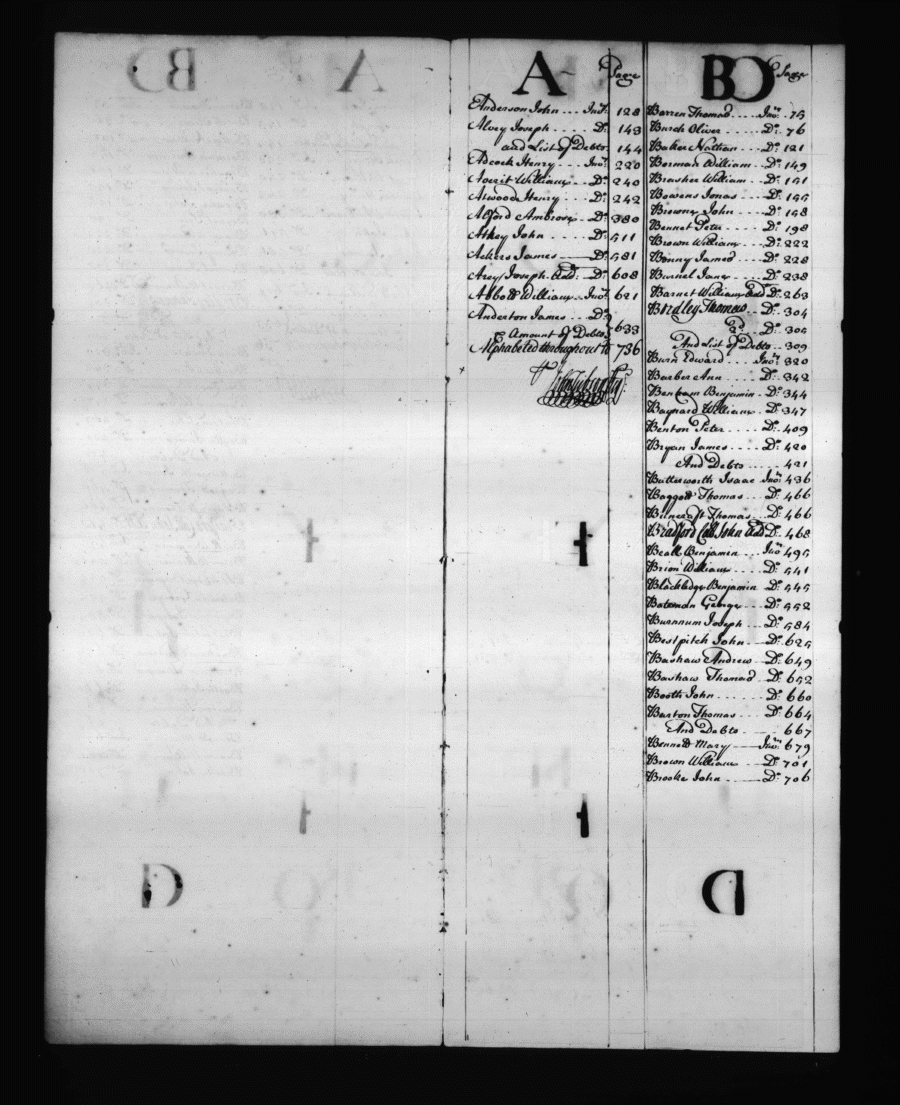 A Page
Anderson John .... Invy. 128
Alvey Joseph .... Do. 143
and List of Debts 144
Adcock Henry ... Invy. 220
Averit William ... Do. 240
Atwood Henry .... Do. 242
Alford Ambrose .. Do. 380
Athey John .... Do. 511
Ackers James — Do. 581
Arey Joseph Add: Do. 608
Abbott William .. Invy. 621
Anderton James — Do.
& Amount of Debts 633
Alphabeted throughout to 736
B Page
Barren Thomas .... Invy. 75
Burch Oliver .... Do. 76
Baker Nathan ... Do. 121
Borman William .. Do. 149
Brasher William .. Do. 151
Bowens Jonas .... Do. 155
Browne John .... Do. 158
Bennet Peter .... Do. 198
Brown William ... Do. 222
Bonny James ... Do. 228
Burnel Jane ... Do. 238
Barnet William Add Do. 263
Bradley Thomas .. Do. 304
Do. .. Do. 305
And List of Debts .. 309
Burn Edward .... Invy. 320
Barber Ann .... Do. 342
Benham Benjamin .. Do. 344
Baynard William .. Do. 347
Benton Peter .... Do. 409
Bryan James .... Do. 420
And Debts ..... 421
Butterworth Isaac Invy. 436
Baggott Thomas ... Do. 466
Thomas .. Do. 466
Bradford John Add Do. 468
Beall Benjamin ... Invy. 495
Brion William .... Do. 541
Blackledge Benjamin .. Do. 545
Bateman George ... Do. 552
Burnnum Joseph ... Do. 584
Bestpitch John ... Do. 625
Bashaw Andrew .. Do. 649
Bashaw Thomas .. Do. 652
Booth John ...... Do. 660
Barton Thomas .... Do. 664
And Debts .... 667
Bennett Mary — Invy. 679
Brown William ... Do. 701
Brooke John ..... Do. 706
D